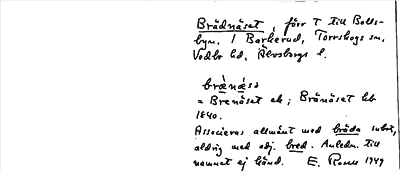 Brädnäset, förr T till Bolls-
byn, 1 Barkerud, Torrskogs sn,
Vedbo hd, Älvsborgs l.
brænæsə
= Brenäset ek; Bränäset hb
1840.
Associeras allmänt med bräda subst,
aldrig med adj. bred. Anledn. till
namnet ej känd. E. Rosell 1949